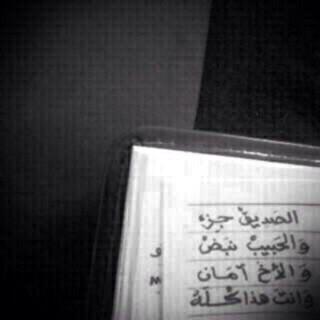 الصديقْ جزء
وَالحَبيبْ نبَضْ
وَ الأخ أمَان
وَانت هذا كُلَهُ